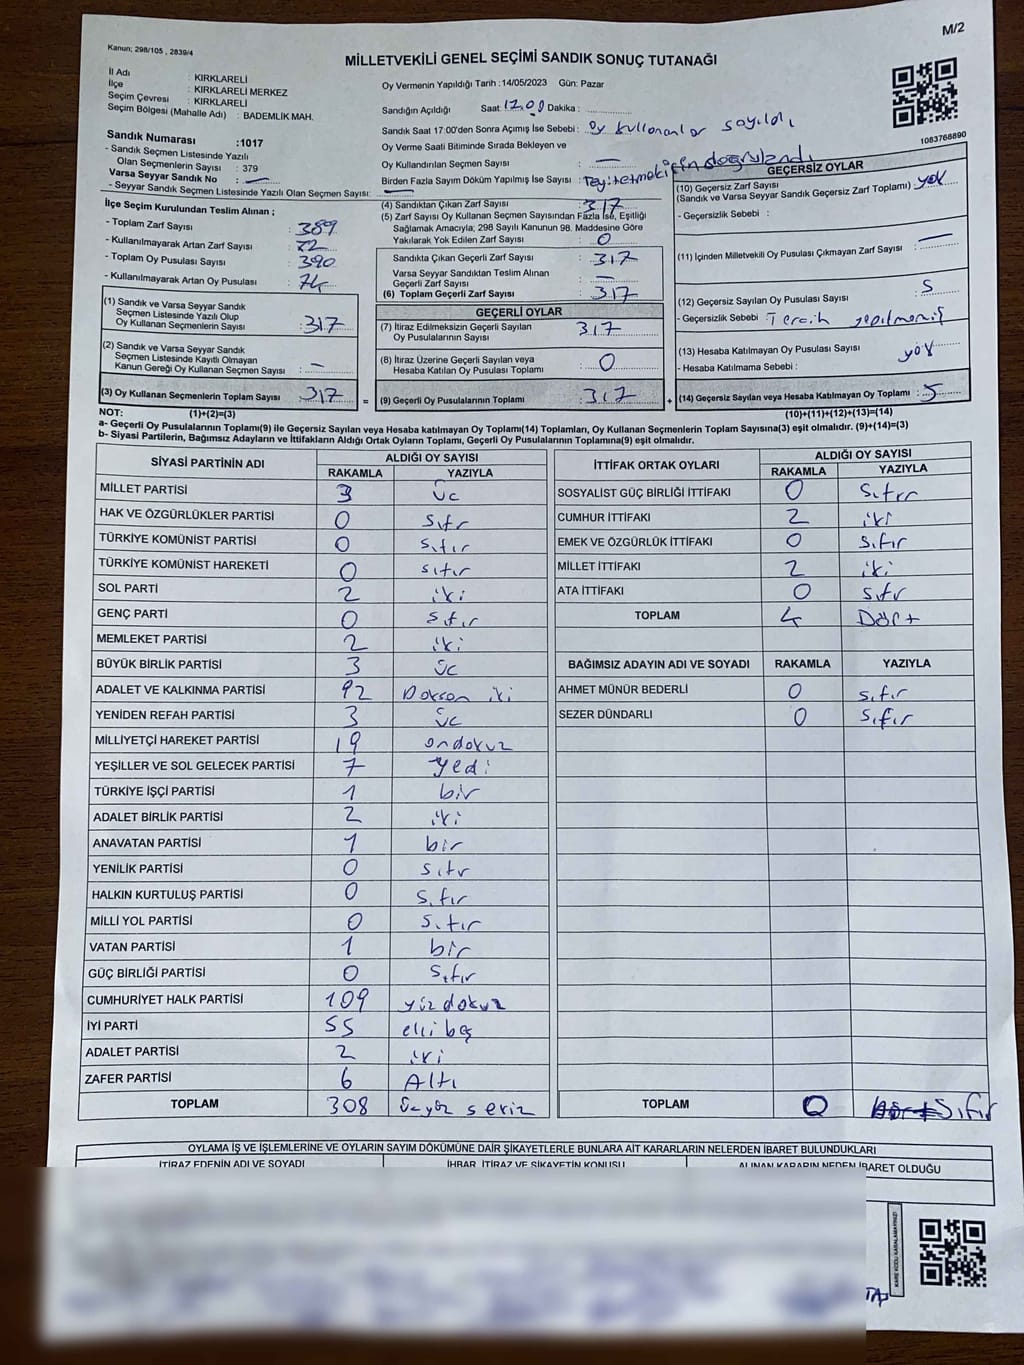 M/2
Kanun; 298/105 , 2839/4
MİLLETVEKİLİ GENEL SEÇİMİ SANDIK SONUÇ TUTANAĞI
İl Adı : KIRKLARELİ
İlçe : KIRKLARELİ MERKEZ
Seçim Çevresi : KIRKLARELİ
Seçim Bölgesi (Mahalle Adı) : BADEMLİK MAH.
Oy Vermenin Yapıldığı Tarih :14/05/2023 Gün: Pazar
Sandığın Açıldığı Saat: Dakika :
Sandık Saat 17:00'den Sonra Açımış İse Sebebi: oy kullananlar sayıldı
Oy Verme Saati Bitiminde Sırada Bekleyen ve
Oy Kullandırılan Seçmen Sayısı : —
Birden Fazla Sayım Döküm Yapılmış İse Sayısı : Teyitetmek için doğrulandı
1083766890
Sandık Numarası :1017
- Sandık Seçmen Listesinde Yazılı
Olan Seçmenlerin Sayısı : 379
Varsa Seyyar Sandık No : —
- Seyyar Sandık Seçmen Listesinde Yazılı Olan Seçmen Sayısı: —
İlçe Seçim Kurulundan Teslim Alınan ;
- Toplam Zarf Sayısı : 389
- Kullanılmayarak Artan Zarf Sayısı : 72
- Toplam Oy Pusulası Sayısı : 390
- Kullanılmayarak Artan Oy Pusulası : 74
(1) Sandık ve Varsa Seyyar Sandık
Seçmen Listesinde Yazılı Olup
Oy Kullanan Seçmenlerin Sayısı : 317
(2) Sandık ve Varsa Seyyar Sandık
Seçmen Listesinde Kayıtlı Olmayan
Kanun Gereği Oy Kullanan Seçmen Sayısı : —
(3) Oy Kullanan Seçmenlerin Toplam Sayısı : 317 =
(4) Sandıktan Çıkan Zarf Sayısı : 317
(5) Zarf Sayısı Oy Kullanan Seçmen Sayısından Fazla İse, Eşitliği
Sağlamak Amacıyla; 298 Sayılı Kanunun 98. Maddesine Göre
Yakılarak Yok Edilen Zarf Sayısı : 0
Sandıkta Çıkan Geçerli Zarf Sayısı : 317
Varsa Seyyar Sandıktan Teslim Alınan
Geçerli Zarf Sayısı : —
(6) Toplam Geçerli Zarf Sayısı : 317
GEÇERLİ OYLAR
(7) İtiraz Edilmeksizin Geçerli Sayılan
Oy Pusulalarının Sayısı : 317
(8) İtiraz Üzerine Geçerli Sayılan veya
Hesaba Katılan Oy Pusulası Toplamı : 0
(9) Geçerli Oy Pusulalarının Toplamı : 317 +
GEÇERSİZ OYLAR
(10) Geçersiz Zarf Sayısı
(Sandık ve Varsa Seyyar Sandık Geçersiz Zarf Toplamı) : yok
- Geçersizlik Sebebi :
(11) İçinden Milletvekili Oy Pusulası Çıkmayan Zarf Sayısı : —
(12) Geçersiz Sayılan Oy Pusulası Sayısı : 5
- Geçersizlik Sebebi : Tercih yapılmamış
(13) Hesaba Katılmayan Oy Pusulası Sayısı : yok
- Hesaba Katılmama Sebebi :
(14) Geçersiz Sayılan veya Hesaba Katılmayan Oy Toplamı : 5
NOT: (1)+(2)=(3) (10)+(11)+(12)+(13)=(14)
a- Geçerli Oy Pusulalarının Toplamı(9) ile Geçersiz Sayılan veya Hesaba katılmayan Oy Toplamı(14) Toplamları, Oy Kullanan Seçmenlerin Toplam Sayısına(3) eşit olmalıdır. (9)+(14)=(3)
b- Siyasi Partilerin, Bağımsız Adayların ve İttifakların Aldığı Ortak Oyların Toplamı, Geçerli Oy Pusulalarının Toplamına(9) eşit olmalıdır.
SİYASİ PARTİNİN ADI ALDIĞI OY SAYISI
RAKAMLA YAZIYLA
MİLLET PARTİSİ 3 üc
HAK VE ÖZGÜRLÜKLER PARTİSİ 0 sıfr
TÜRKİYE KOMÜNİST PARTİSİ 0 sıfır
TÜRKİYE KOMÜNİST HAREKETİ 0 sıfır
SOL PARTİ 2 iki
GENÇ PARTİ 0 sıfır
MEMLEKET PARTİSİ 2 iki
BÜYÜK BİRLİK PARTİSİ 3 üc
ADALET VE KALKINMA PARTİSİ 92 Doksan iki
YENİDEN REFAH PARTİSİ 3 üc
MİLLİYETÇİ HAREKET PARTİSİ 19 ondokuz
YEŞİLLER VE SOL GELECEK PARTİSİ 7 yedi
TÜRKİYE İŞÇİ PARTİSİ 1 bir
ADALET BİRLİK PARTİSİ 2 iki
ANAVATAN PARTİSİ 1 bir
YENİLİK PARTİSİ 0 sıfır
HALKIN KURTULUŞ PARTİSİ 0 sıfır
MİLLİ YOL PARTİSİ 0 sıfır
VATAN PARTİSİ 1 bir
GÜÇ BİRLİĞİ PARTİSİ 0 sıfır
CUMHURİYET HALK PARTİSİ 109 yüzdokuz
İYİ PARTİ 55 elli beş
ADALET PARTİSİ 2 iki
ZAFER PARTİSİ 6 Altı
TOPLAM 308 üçyüz sekiz
İTTİFAK ORTAK OYLARI ALDIĞI OY SAYISI
RAKAMLA YAZIYLA
SOSYALIST GÜÇ BİRLİĞİ İTTİFAKI 0 sıfır
CUMHUR İTTİFAKI 2 iki
EMEK VE ÖZGÜRLÜK İTTİFAKI 0 sıfır
MİLLET İTTİFAKI 2 iki
ATA İTTİFAKI 0 sıfır
TOPLAM 4 Dört
BAĞIMSIZ ADAYIN ADI VE SOYADI RAKAMLA YAZIYLA
AHMET MÜNÜR BEDERLİ 0 sıfır
SEZER DÜNDARLI 0 sıfır
TOPLAM 0 Sıfır
OYLAMA İŞ VE İŞLEMLERİNE VE OYLARIN SAYIM DÖKÜMÜNE DAİR ŞİKAYETLERLE BUNLARA AİT KARARLARIN NELERDEN İBARET BULUNDUKLARI
İTİRAZ EDENİN ADI VE SOYADI İHBAR, İTİRAZ VE ŞİKAYETİN KONUSU ALINAN KARARIN NEDEN İBARET OLDUĞU
KARE KODU KARALAMAYINIZ!